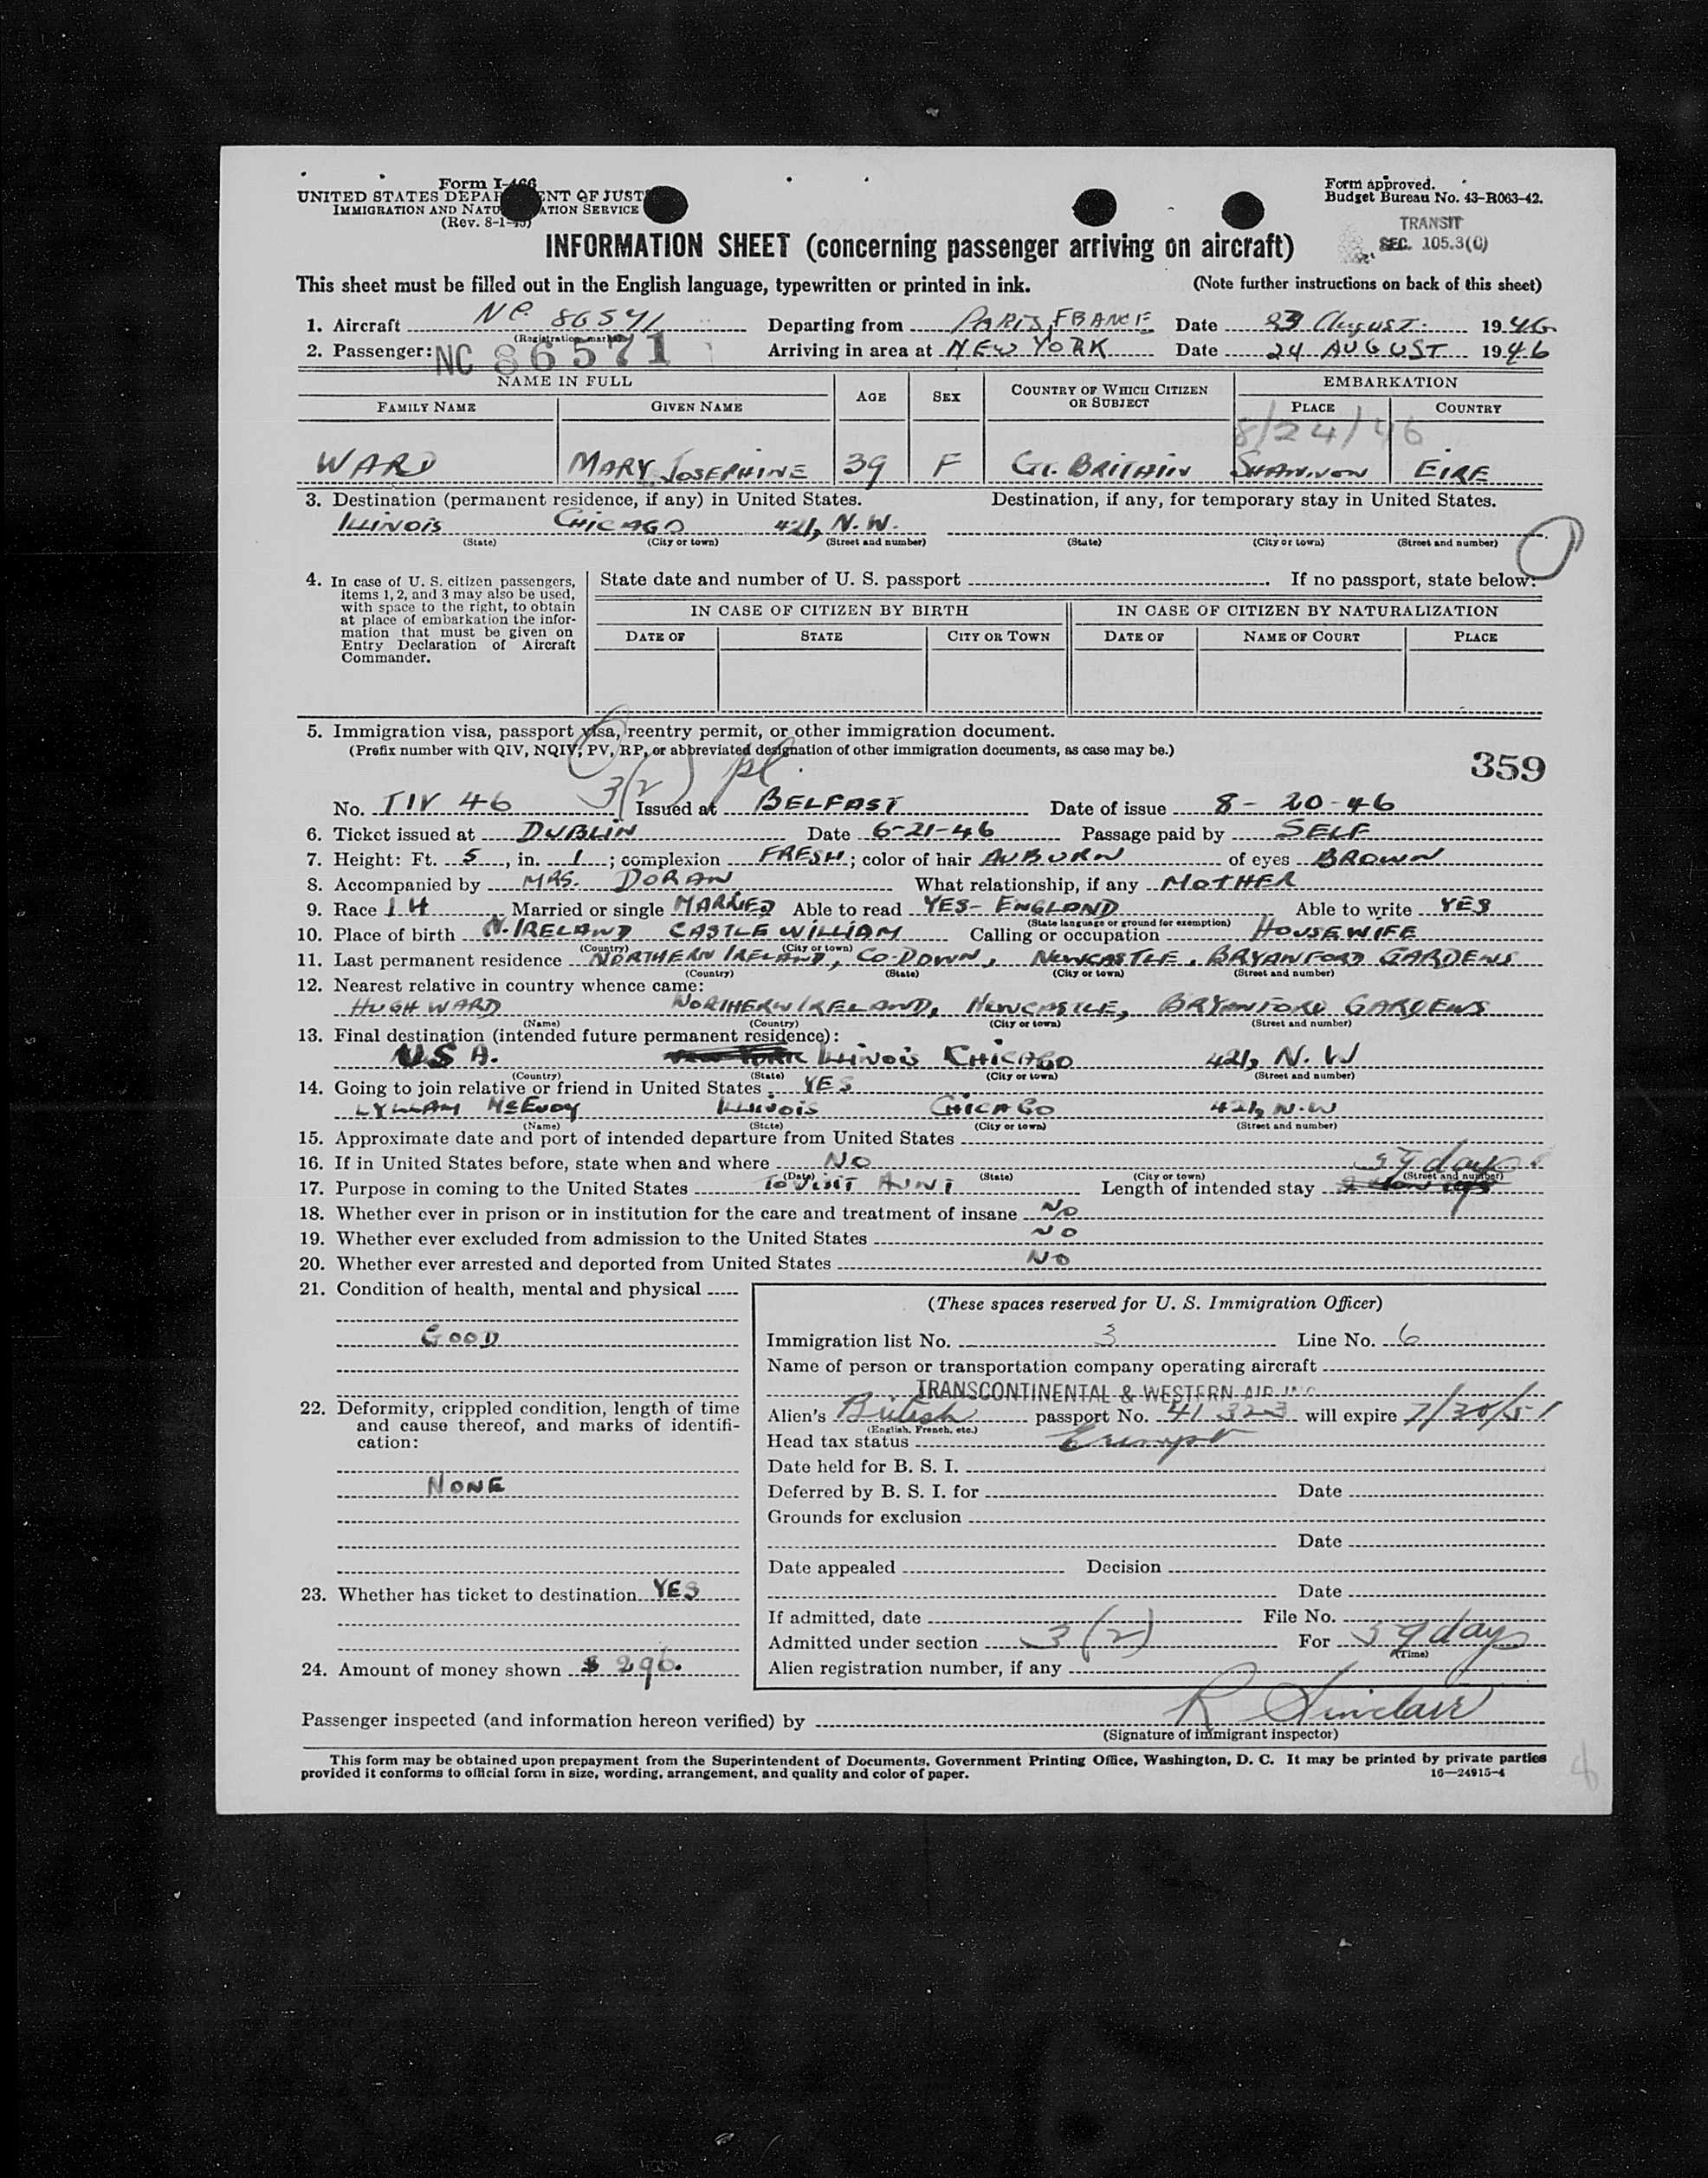 Form I-466
UNITED STATES DEPARTMENT OF JUSTICE
IMMIGRATION AND NATURALIZATION SERVICE
(Rev. 8-1-45)
Form approved.
Budget Bureau No. 43-R063-42.
TRANSIT
SEC. 105.3(C)
INFORMATION SHEET (concerning passenger arriving on aircraft)
This sheet must be filled out in the English language, typewritten or printed in ink. (Note further instructions on back of this sheet)
1. Aircraft NC 86571 Departing from PARIS, FRANCE Date 23 August 1946
(Registration mark)
2. Passenger: NC 86571 Arriving in area at NEW YORK Date 24 AUGUST 1946
NAME IN FULL AGE SEX COUNTRY OF WHICH CITIZEN OR SUBJECT EMBARKATION
FAMILY NAME GIVEN NAME PLACE COUNTRY
8/24/46
WARD MARY JOSEPHINE 39 F GT. BRITAIN SHANNON EIRE
3. Destination (permanent residence, if any) in United States. Destination, if any, for temporary stay in United States.
ILLINOIS CHICAGO 421, N.W.
(State) (City or town) (Street and number) (State) (City or town) (Street and number)
4. In case of U. S. citizen passengers, items 1, 2, and 3 may also be used, with space to the right, to obtain at place of embarkation the information that must be given on Entry Declaration of Aircraft Commander.
State date and number of U. S. passport If no passport, state below:
IN CASE OF CITIZEN BY BIRTH IN CASE OF CITIZEN BY NATURALIZATION
DATE OF STATE CITY OR TOWN DATE OF NAME OF COURT PLACE
5. Immigration visa, passport visa, reentry permit, or other immigration document.
(Prefix number with QIV, NQIV, PV, RP, or abbreviated designation of other immigration documents, as case may be.)
359
3(2) pl.
No. TIV 46 Issued at BELFAST Date of issue 8-20-46
6. Ticket issued at DUBLIN Date 6-21-46 Passage paid by SELF
7. Height: Ft. 5, in. 1; complexion FRESH; color of hair AUBURN of eyes BROWN
8. Accompanied by MRS. DORAN What relationship, if any MOTHER
9. Race Married or single MARRIED Able to read YES- ENGLAND Able to write YES
(State language or ground for exemption)
10. Place of birth N. IRELAND CASTLE WILLIAM Calling or occupation HOUSEWIFE
(Country) (City or town)
11. Last permanent residence NORTHERN IRELAND, CO-DOWN, NEWCASTLE, BRYANFORD GARDENS
(Country) (State) (City or town) (Street and number)
12. Nearest relative in country whence came:
HUGH WARD NORTHERN IRELAND, NEWCASTLE, BRYANFORD GARDENS
(Name) (Country) (City or town) (Street and number)
13. Final destination (intended future permanent residence):
USA. ILLINOIS CHICAGO 421, N.W
(Country) (State) (City or town) (Street and number)
14. Going to join relative or friend in United States YES
McEVOY ILLINOIS CHICAGO 421, N.W
(Name) (State) (City or town) (Street and number)
15. Approximate date and port of intended departure from United States
16. If in United States before, state when and where NO
(Date) (State) (City or town) (Street and number)
59 days
17. Purpose in coming to the United States TO VISIT AUNT Length of intended stay
18. Whether ever in prison or in institution for the care and treatment of insane NO
19. Whether ever excluded from admission to the United States NO
20. Whether ever arrested and deported from United States NO
21. Condition of health, mental and physical
GOOD
22. Deformity, crippled condition, length of time and cause thereof, and marks of identification:
NONE
23. Whether has ticket to destination YES
24. Amount of money shown $ 296.
(These spaces reserved for U. S. Immigration Officer)
Immigration list No. 3 Line No. 6
Name of person or transportation company operating aircraft
TRANSCONTINENTAL & WESTERN AIR INC
Alien's British passport No. 41323 will expire 7/30/51
(English, French, etc.)
Head tax status Exempt
Date held for B. S. I.
Deferred by B. S. I. for Date
Grounds for exclusion
Date
Date appealed Decision
Date
If admitted, date File No.
Admitted under section 3(2) For 59 days
(Time)
Alien registration number, if any
Passenger inspected (and information hereon verified) by R Sinclair
(Signature of immigrant inspector)
This form may be obtained upon prepayment from the Superintendent of Documents, Government Printing Office, Washington, D. C. It may be printed by private parties
provided it conforms to official form in size, wording, arrangement, and quality and color of paper. 16—24915-4
8